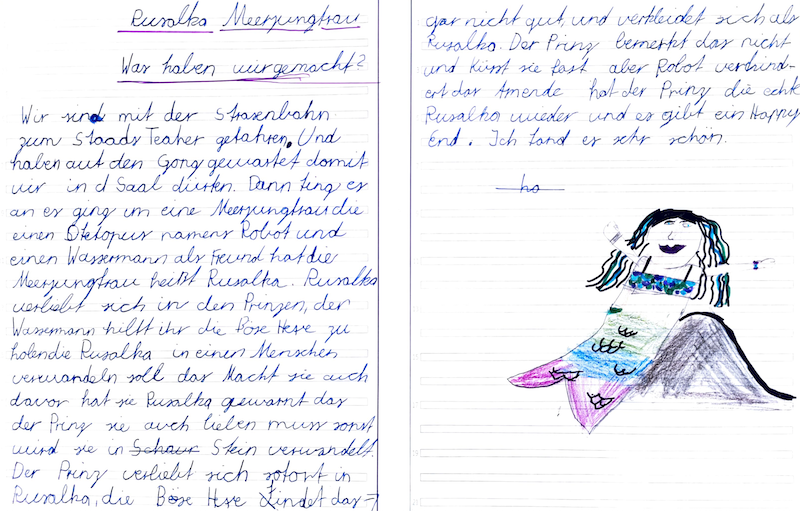 Rusalka Meerjungfrau
Was haben wir gemacht?
Wir sind mit der Strasenbahn
zum Staads Teaher gefahren. Und
haben auf den Gong gewartet damit
wir in d Saal dürfen. Dann fing es
an es ging um eine Meerjungfrau die
einen Oktopus namens Robot und
einen Wassermann als Freund hat die
Meerjungfrau heißt Rusalka. Rusalka
verliebt sich in den Prinzen, der
Wassermann hilft ihr die Böse Hexe zu
holen die Rusalka in einen Menschen
verwandeln soll das Macht sie auch
davor hat sie Rusalka gewarnt das
der Prinz sie auch lieben muss sonst
wird sie in Schaur Stein verwandelt.
Der Prinz verliebt sich sofort in
Rusalka, die Böse Hexe findet das →
gar nicht gut, und verkleidet sich als
Rusalka. Der Prinz bemerkt das nicht
und küsst sie fast aber Robot verhind-
ert das Amende hat der Prinz die echte
Rusalka wieder und es gibt ein Happy
End. Ich fand es sehr schön.